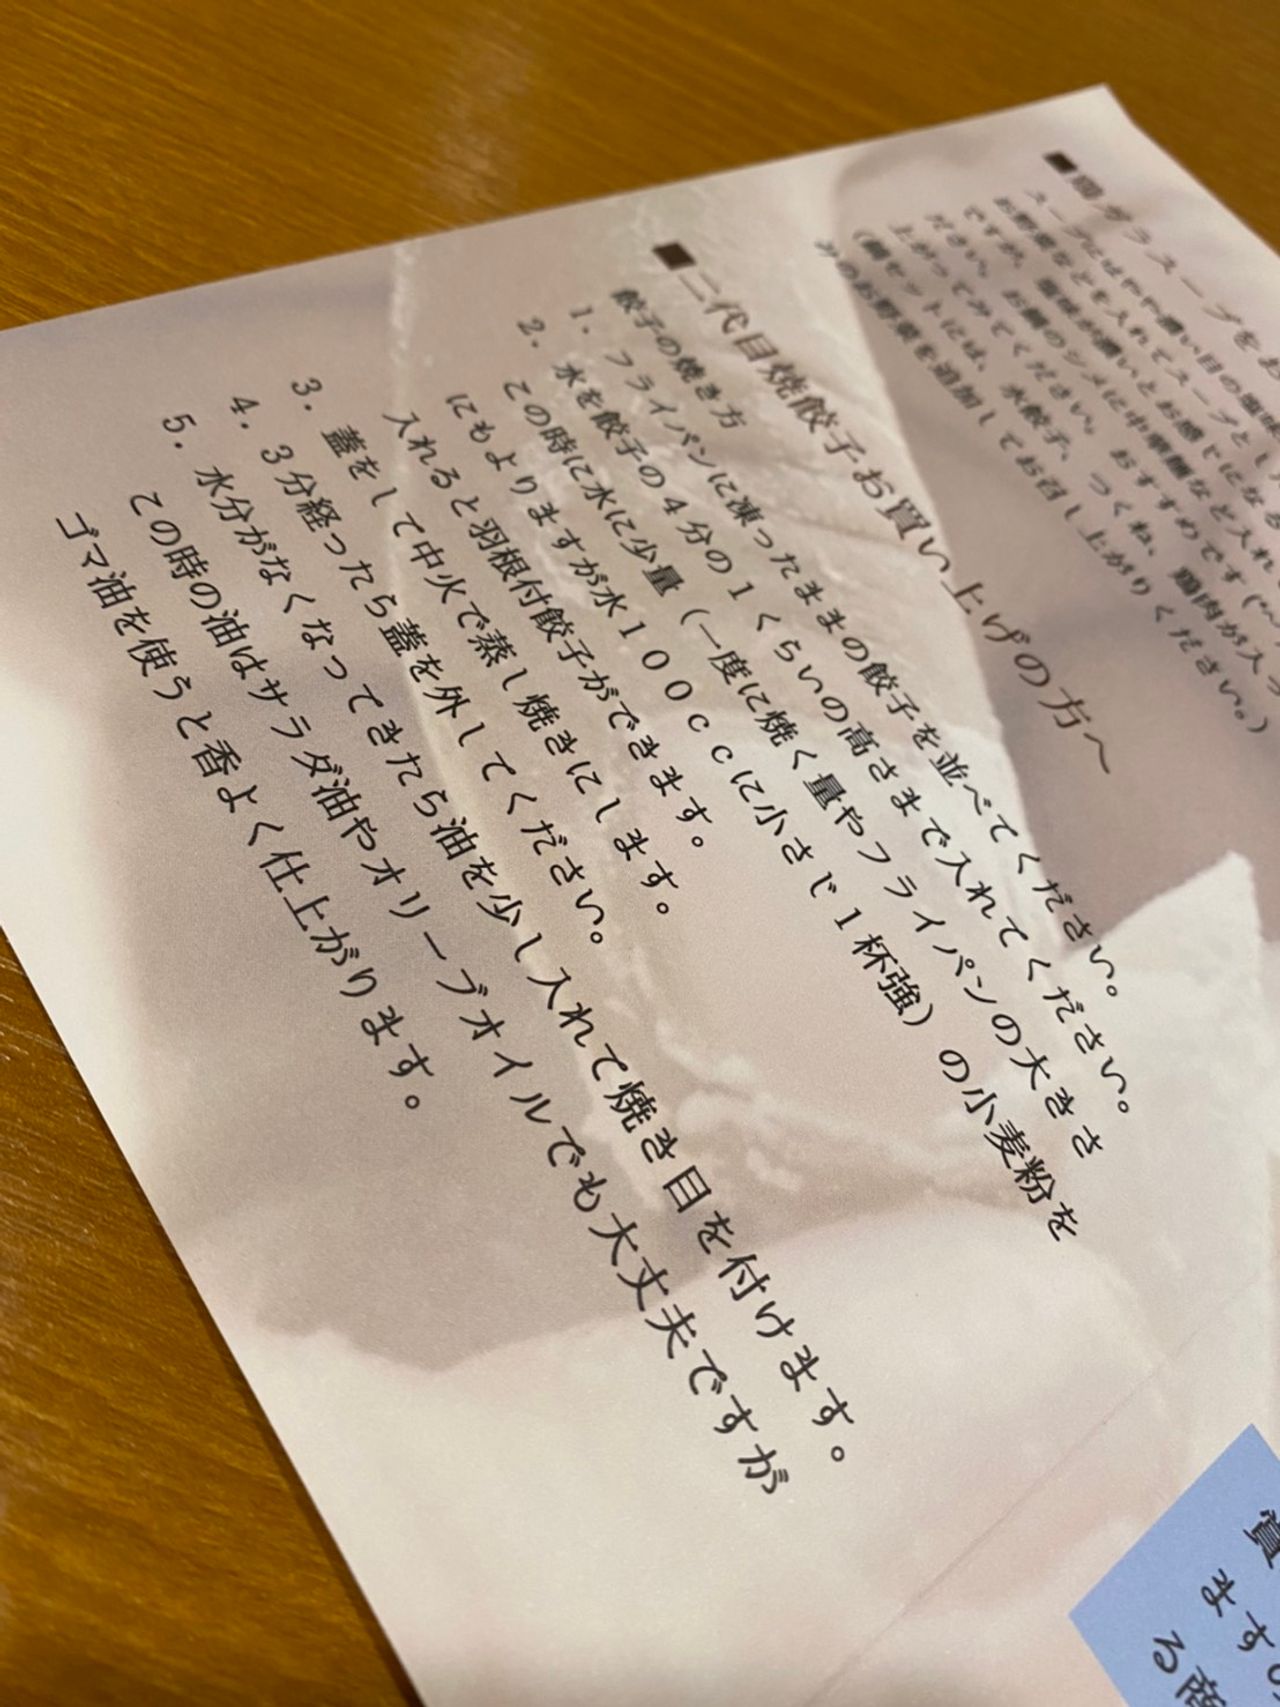 ■鶏ガラスープをお
スープにはやや濃い目の塩味
お野菜などを入れてスープとし
ですが、塩味が濃いとお感じになる
ださい。お鍋のシメに中華麺など入れ
上がってみてください。おすすめです
(鍋セットには、水餃子、つくね、鶏肉が入っ
みのお野菜を追加してお召し上がりください。)
■二代目焼餃子お買い上げの方へ
餃子の焼き方
1. フライパンに凍ったままの餃子を並べてください。
2. 水を餃子の4分の1くらいの高さまで入れてください。
この時に水に少量(一度に焼く量やフライパンの大きさ
にもよりますが水100ccに小さじ1杯強)の小麦粉を
入れると羽根付餃子ができます。
3. 蓋をして中火で蒸し焼きにします。
4. 3分経ったら蓋を外してください。
5. 水分がなくなってきたら油を少し入れて焼き目を付けます。
この時の油はサラダ油やオリーブオイルでも大丈夫ですが
ゴマ油を使うと香よく仕上がります。
賞
ますの
る商